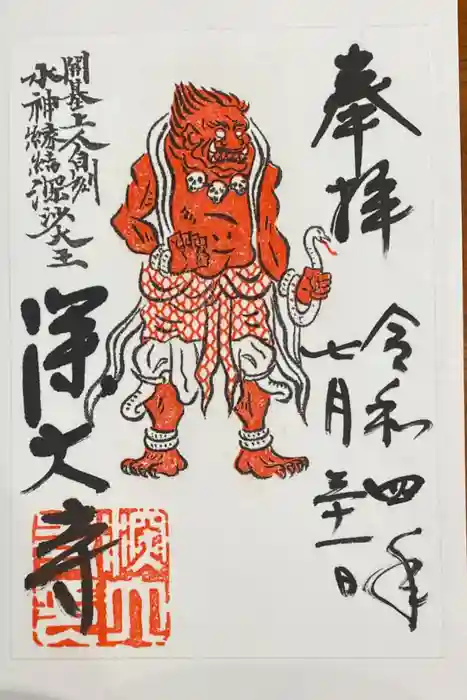 奉拝
令和四年
七月三十一日
開基上人自刻
水神縁結深沙大王
深大寺